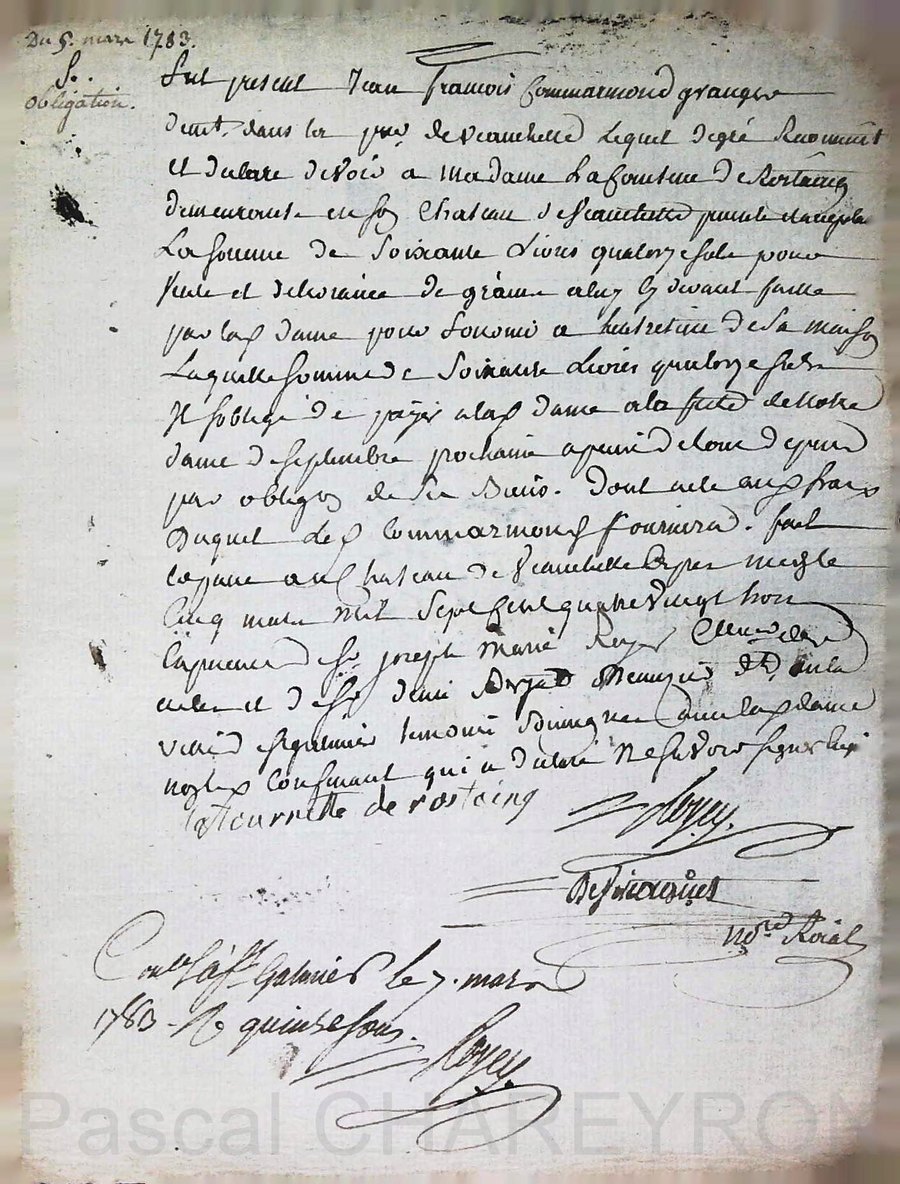 Du 5. mars 1783.
S..
Obligation.
fut present Jean François Commarmond granger
demt. dans la par de Veauchette Lequel de gré Reconnoit
et declare devoir a Madame La Comtesse de Rostaing
demeurante en son Chateau de Veauchette presente et accepte
La somme de Soixante Livres quatorze sols pour
Vente et delivrance de graine a luy cy devant faitte
par lad dame pour Lentretien de sa maison
Laquelle somme de Soixante Livres quatorze sols
Il soblige de payer a lad dame a la fete de Notre
dame de septembre prochaine a peine de tous depens
par obligon de ses Biens. Dont acte aux frais
Duquel led Commarmond fournira. fait
et passé au Chateau de Veauchette Le
Cinq mars Mil Sept Cent quatre Vingt trois
En presence de Sr joseph Marie Royer Clerc
et de Sr deni Menuizier de la
Ville de St galmier temoins Soussignes avec lad dame
non led Confessant qui a declaré Ne Savoir signer
latournette de rostaing
Royer.
Desjacques
Nore. Roial
Conlé a St. Galmier le 7. mars
1783 - R quinze sous.
Royer.
Pascal CHAREYRON